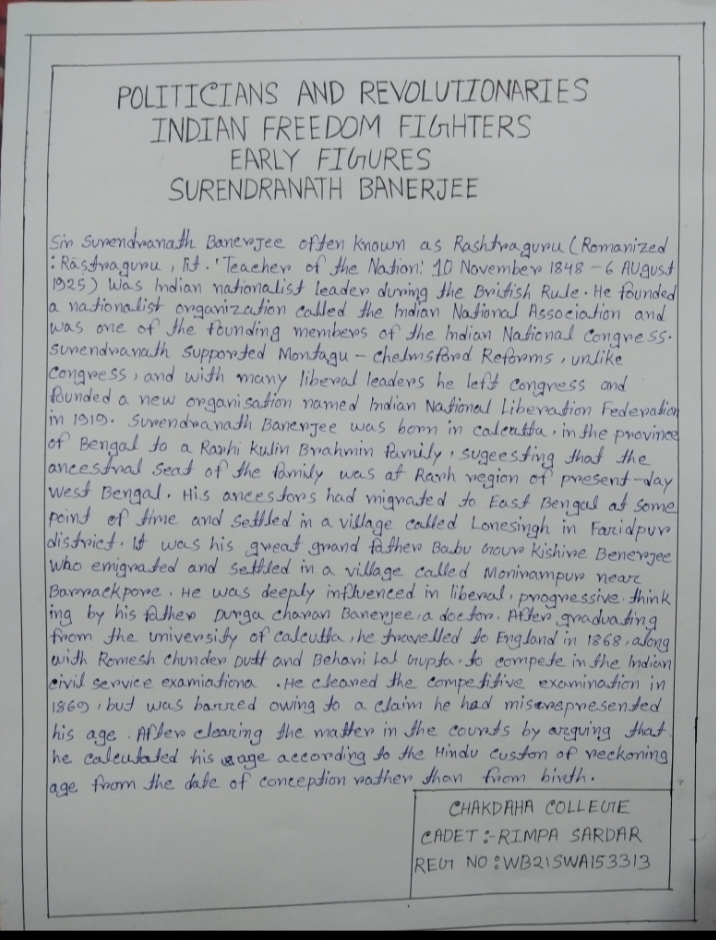 POLITICIANS AND REVOLUTIONARIES
INDIAN FREEDOM FIGHTERS
EARLY FIGURES
SURENDRANATH BANERJEE
Sir Surendranath Banerjee often known as Rashtraguru (Romanized
: Rāstraguru, lit. 'Teacher of the Nation: 10 November 1848 – 6 August
1925) was Indian nationalist leader during the British Rule. He founded
a nationalist organization called the Indian National Association and
was one of the founding members of the Indian National Congress.
Surendranath supported Montagu – Chelmsford Reforms, unlike
Congress, and with many liberal leaders he left Congress and
founded a new organisation named Indian National Liberation Federation
in 1919. Surendranath Banerjee was born in calcutta, in the province
of Bengal to a Rarhi Kulin Brahmin family, sugeesting that the
ancestral seat of the family was at Rarh region of present-day
West Bengal. His ancestors had migrated to East Bengal at some
point of time and settled in a village called Lonesingh in Faridpur
district. It was his great grand father Babu Gour Kishire Benerjee
who emigrated and settled in a village called Monirampur near
Barrackpore. He was deeply influenced in liberal, progressive think
ing by his father Durga charan Banerjee, a doctor. After graduating
from the university of calcutta, he travelled to England in 1868, along
with Romesh chunder Dutt and Behari Lal Gupta, to compete in the Indian
civil service examiationa . He cleared the competitive examination in
1869, but was barred owing to a claim he had misrepresented
his age. After clearing the matter in the courts by arguing that
he calculated his age according to the Hindu custon of reckoning
age from the date of conception rather than from birth.
CHAKDAHA COLLEGE
CADET :- RIMPA SARDAR
REG NO : WB21SWA153313